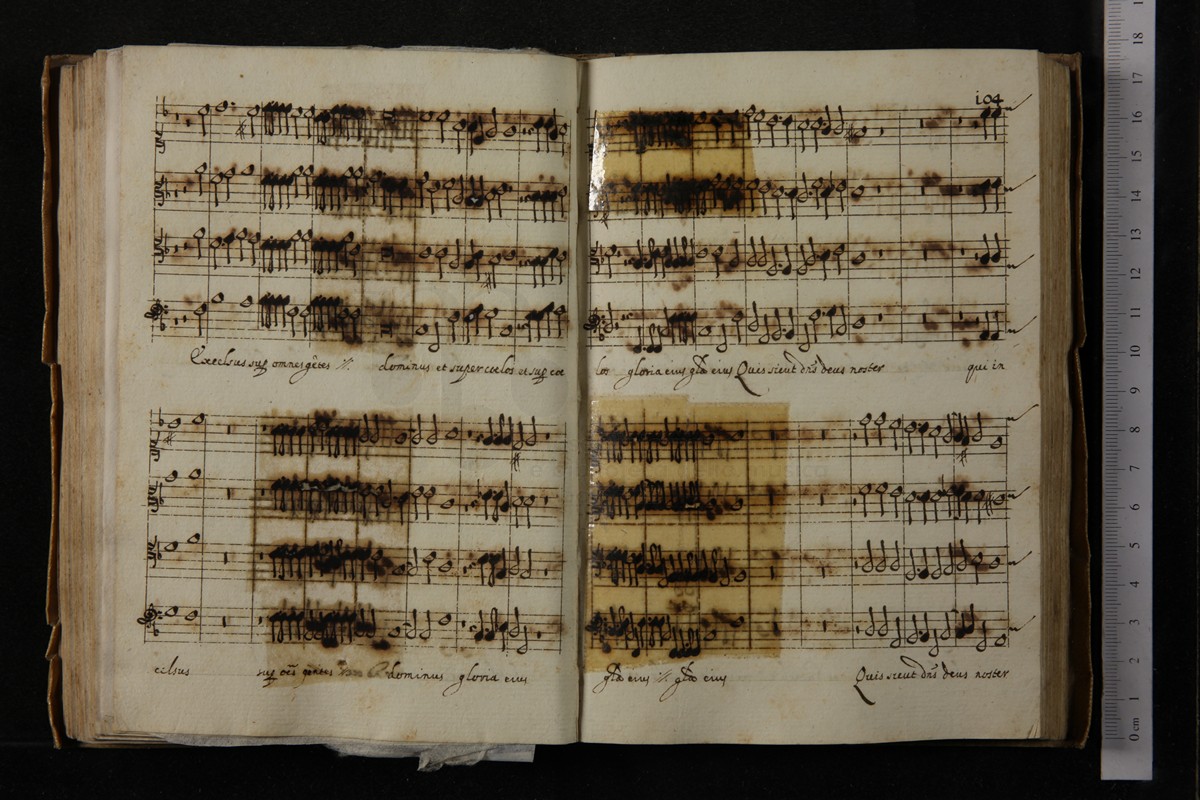 104
Excelsus sup omnes gẽtes :// dominus et super coelos et sup coe
los gloria eius glã eius Quis sicut dñs deus noster qui in
celsus sup oẽs gentes dominus gloria eius
glã eius :// glã eius Quis sicut dñs deus noster
18
17
16
15
14
13
12
11
10
9
8
7
6
5
4
3
2
1
0 cm